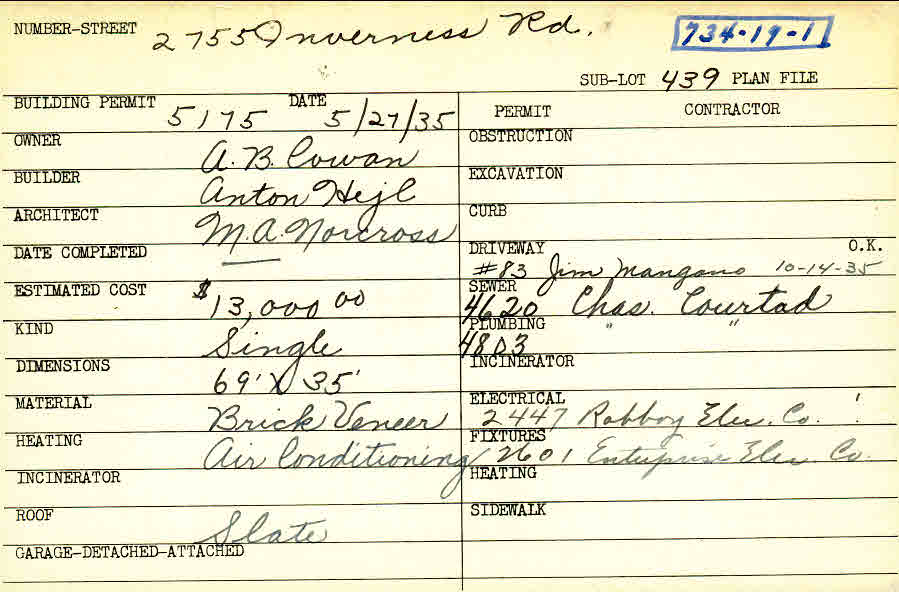 NUMBER-STREET 2755 Inverness Rd. 734-19-1
SUB-LOT 439 PLAN FILE
BUILDING PERMIT 5175 DATE 5/27/35 PERMIT CONTRACTOR
OWNER A. B. Cowan
BUILDER Anton Hejl
ARCHITECT M. A. Norcross
DATE COMPLETED
ESTIMATED COST $13,000 00
KIND Single
DIMENSIONS 69' X 35'
MATERIAL Brick Veneer
HEATING Air Conditioning
INCINERATOR
ROOF Slate
GARAGE-DETACHED-ATTACHED
OBSTRUCTION
EXCAVATION
CURB
DRIVEWAY O.K.
#83 Jim Mangano 10-14-35
SEWER 4620 Chas. Courtad
PLUMBING 4803 " "
INCINERATOR
ELECTRICAL 2447 Robboy Elec. Co.
FIXTURES 2601 Enterprise Elec Co.
HEATING
SIDEWALK